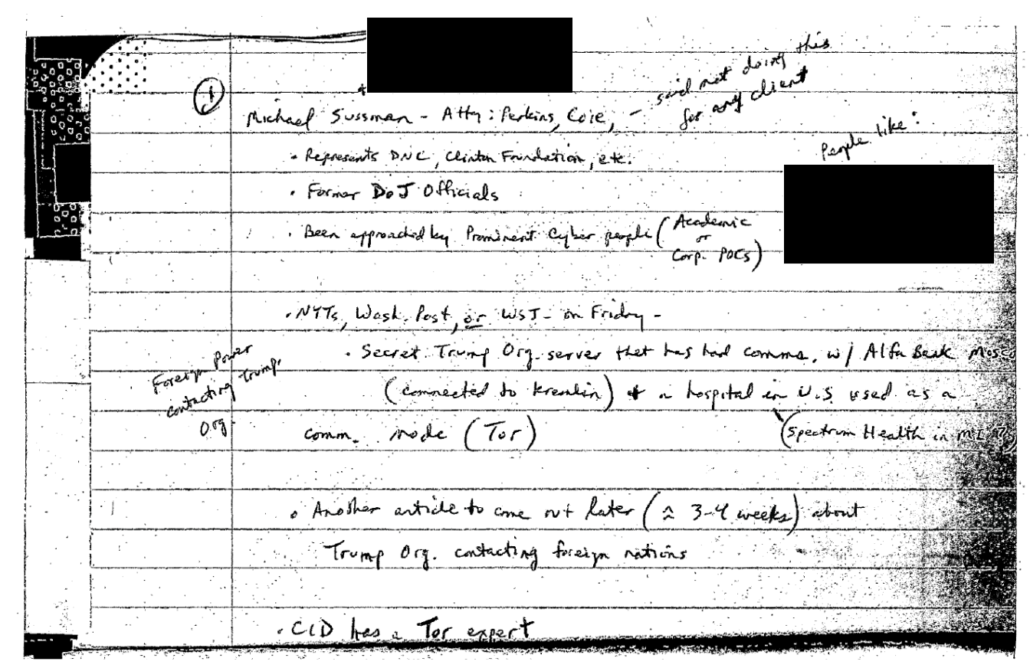 ① Michael Sussman - Atty: Perkins, Coie, - said not doing this
for any client
• Represents DNC, Clinton Foundation, etc.
People like:
• Former DoJ Officials
• Been approached by Prominent Cyber people (Academic
or
Corp. POCs)
• NYTs, Wash. Post, or WSJ - on Friday -
• Secret Trump Org. server that has had comms. w/ Alfa Bank
Foreign Power
contacting Trump.
Org.
(connected to Kremlin) & a hospital in U.S used as a
comm. node (Tor)
(Spectrum Health in
• Another article to come out later (≈ 3-4 weeks) about
Trump Org. contacting foreign nations
• CID has a Tor expert